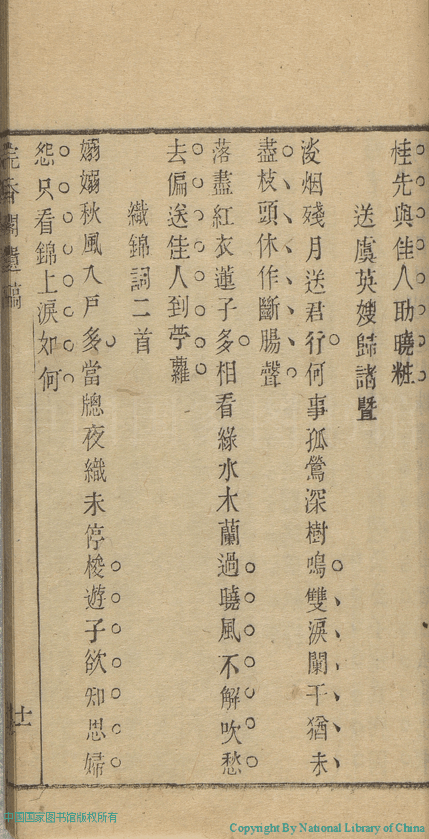 桂先與佳人助曉粧
送虞英嫂歸諸暨
淡烟殘月送君行何事孤鶯深樹鳴雙淚闌干猶未
盡枝頭休作斷腸聲
落盡紅衣蓮子多相看綠水木蘭過曉風不解吹愁
去偏送佳人到苧蘿
織錦詞二首
嫋嫋秋風入戶多當牕夜織未停梭遊子欲知思婦
怨只看錦上淚如何
浣香閣遺稿
十一
中国国家图书馆版权所有
Copyright By National Library of China